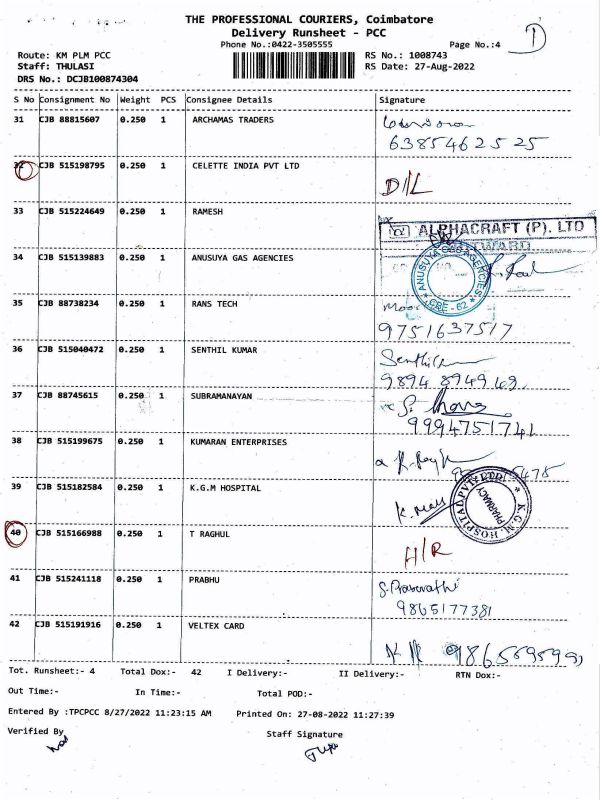 THE PROFESSIONAL COURIERS, Coimbatore
Delivery Runsheet - PCC
Phone No.:0422-3505555
Page No.:4
1
Route: KM PLM PCC
RS No.: 1008743
Staff: THULASI
RS Date: 27-Aug-2022
DRS No.: DCJB100874304
S No Consignment No Weight PCS Consignee Details Signature
31 CJB 88815607 0.250 1 ARCHAMAS TRADERS
6385462525
32 CJB 515198795 0.250 1 CELETTE INDIA PVT LTD
D/L
33 CJB 515224649 0.250 1 RAMESH
ALPHACRAFT (P). LTD
INWARD
34 CJB 515139883 0.250 1 ANUSUYA GAS AGENCIES
ANUSUYA GAS AGENCIES
CBE - 62
35 CJB 88738234 0.250 1 RANS TECH
9751637517
36 CJB 515040472 0.250 1 SENTHIL KUMAR
Senthil
9894 8949
37 CJB 88745615 0.250 1 SUBRAMANAYAN
9994751741
38 CJB 515199675 0.250 1 KUMARAN ENTERPRISES
39 CJB 515182584 0.250 1 K.G.M HOSPITAL
K.G.M. HOSPITAL PVT LTD
PHARMACY
40 CJB 515166988 0.250 1 T RAGHUL
H/R
41 CJB 515241118 0.250 1 PRABHU
9865177381
42 CJB 515191916 0.250 1 VELTEX CARD
Tot. Runsheet:- 4 Total Dox:- 42 I Delivery:- II Delivery:- RTN Dox:-
Out Time:- In Time:- Total POD:-
Entered By :TPCPCC 8/27/2022 11:23:15 AM Printed On: 27-08-2022 11:27:39
Verified By Staff Signature